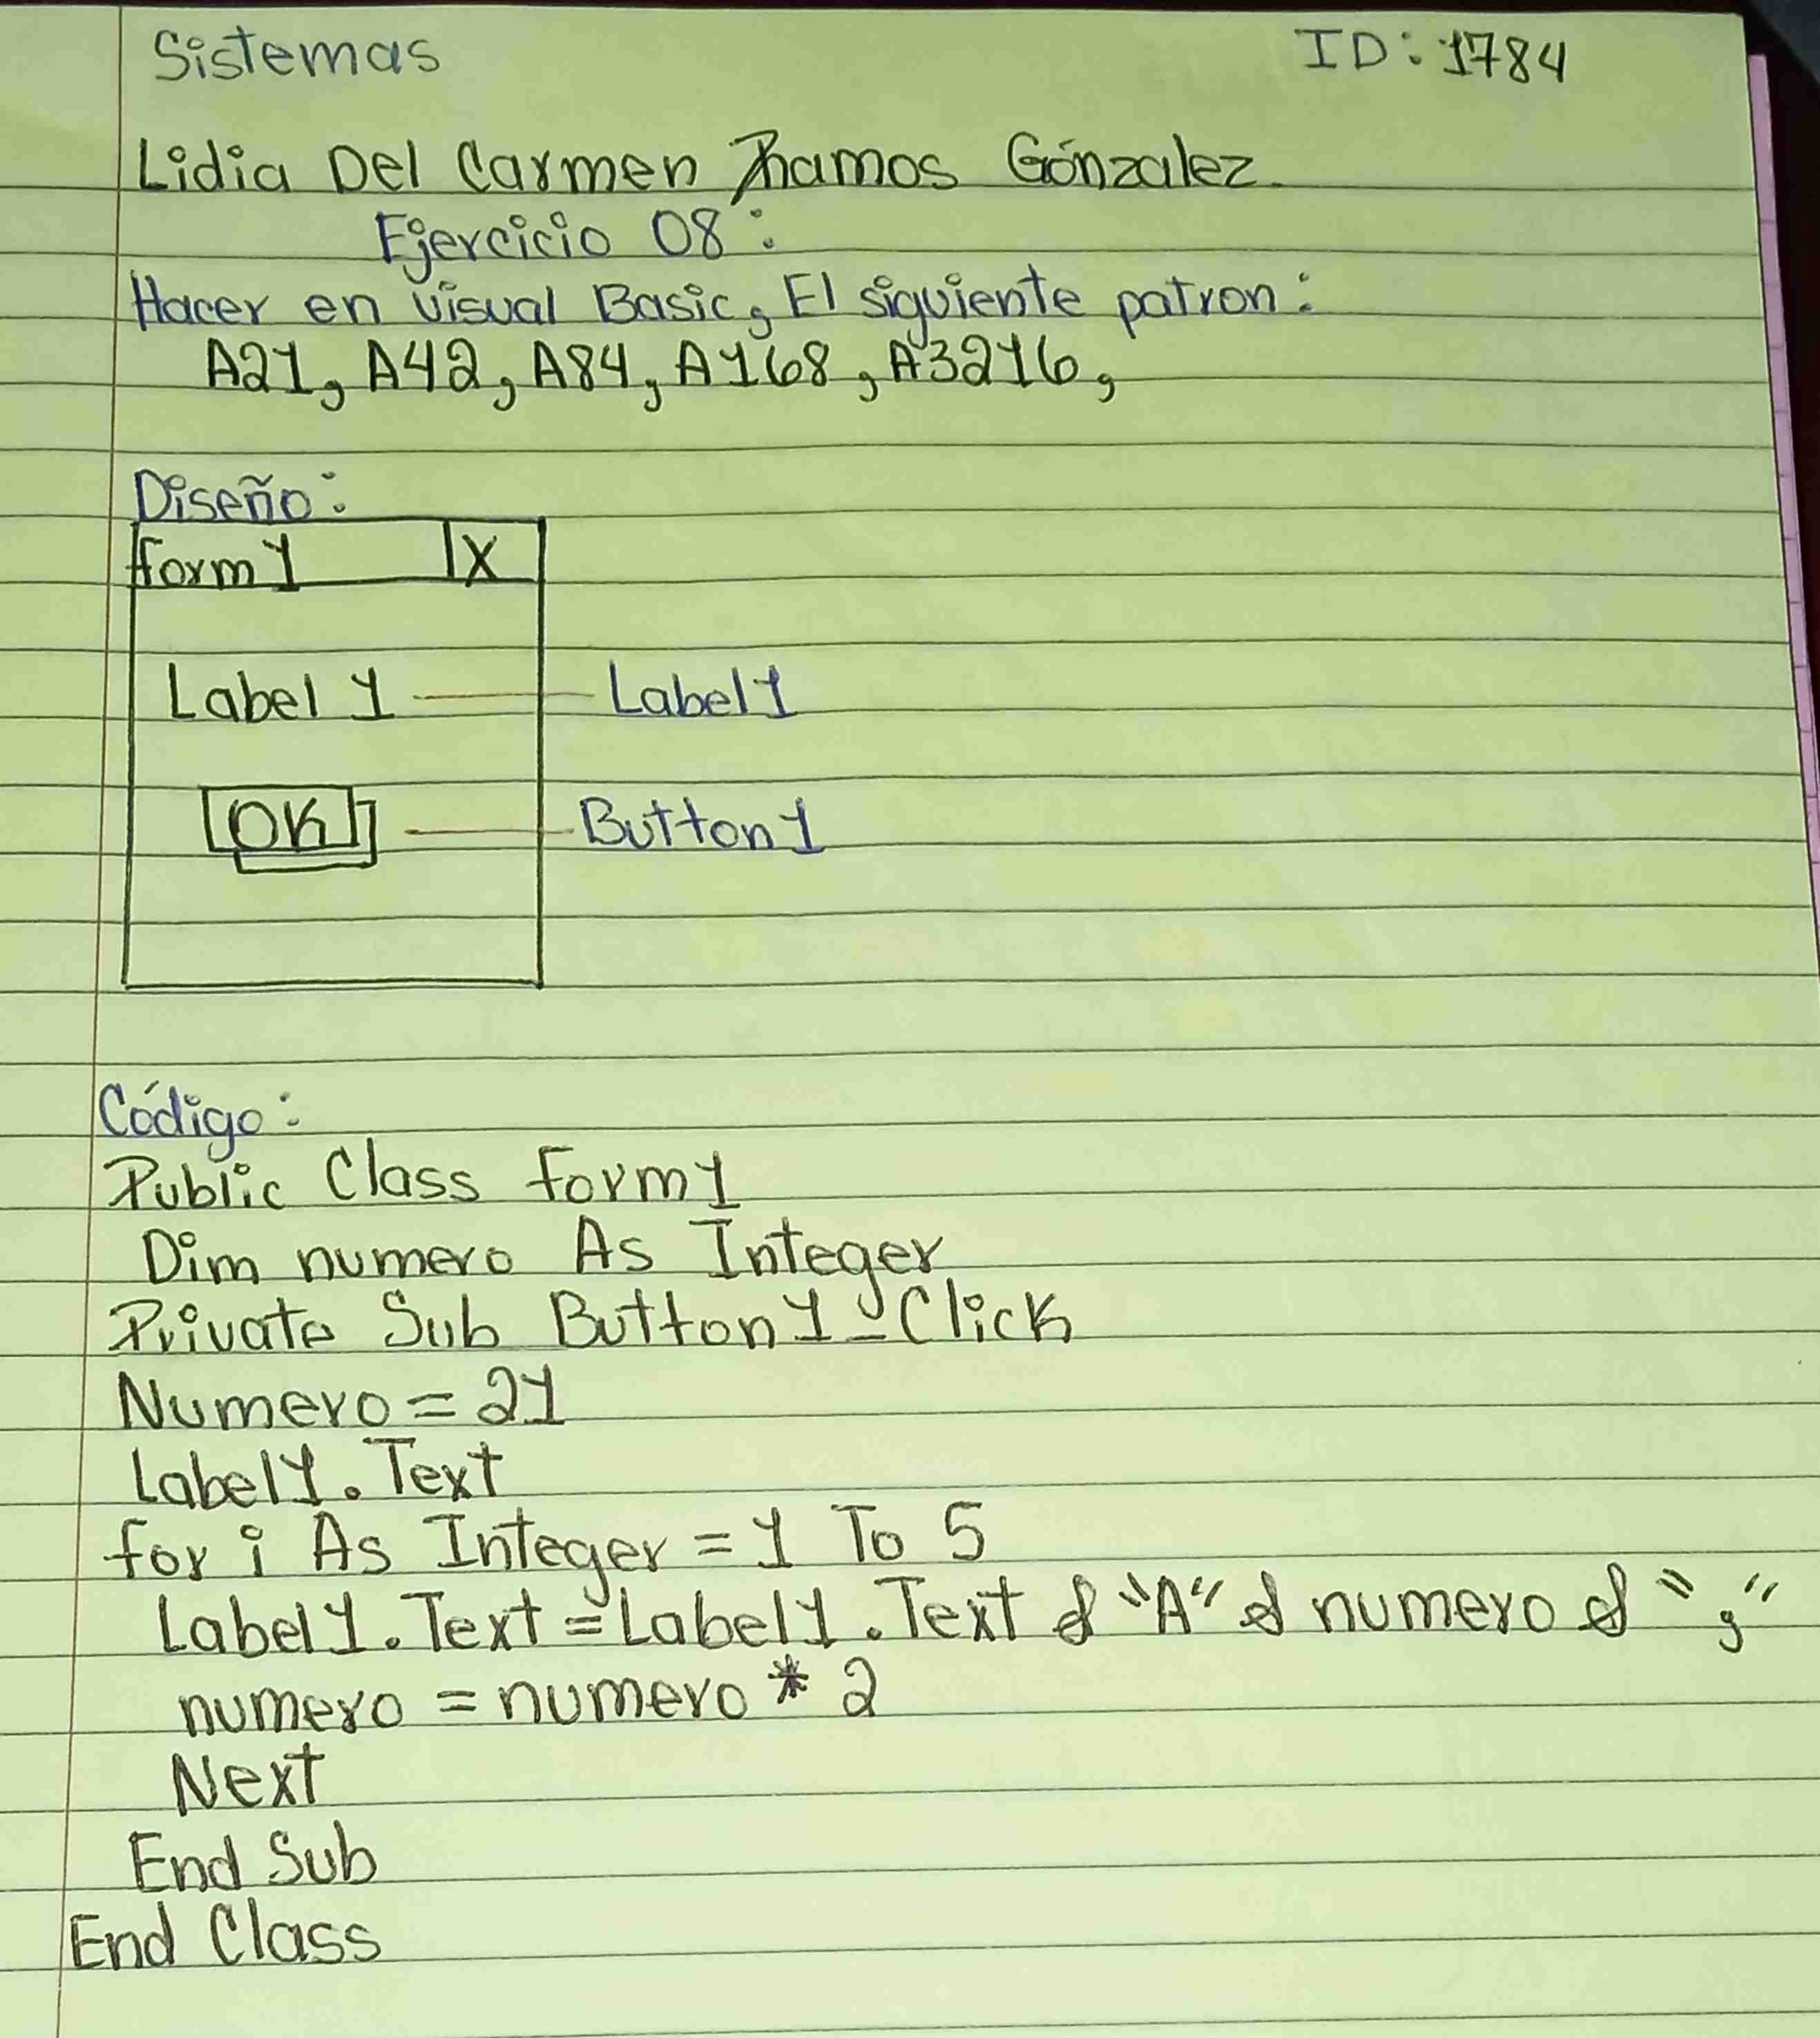 Sistemas ID: 1784
Lidia Del Carmen Rhamos Gónzalez.
Ejercicio 08:
Hacer en visual Basic, El siguiente patron:
A21, A42, A84, A168, A3216,
Diseño:
form1 X
Label 1 Label1
OK Button1
Código:
Public Class form1
Dim numero As Integer
Private Sub Button1_Click
Numero = 21
Label1.Text
for i As Integer = 1 To 5
Label1.Text = Label1.Text & "A" & numero & ","
numero = numero * 2
Next
End Sub
End Class